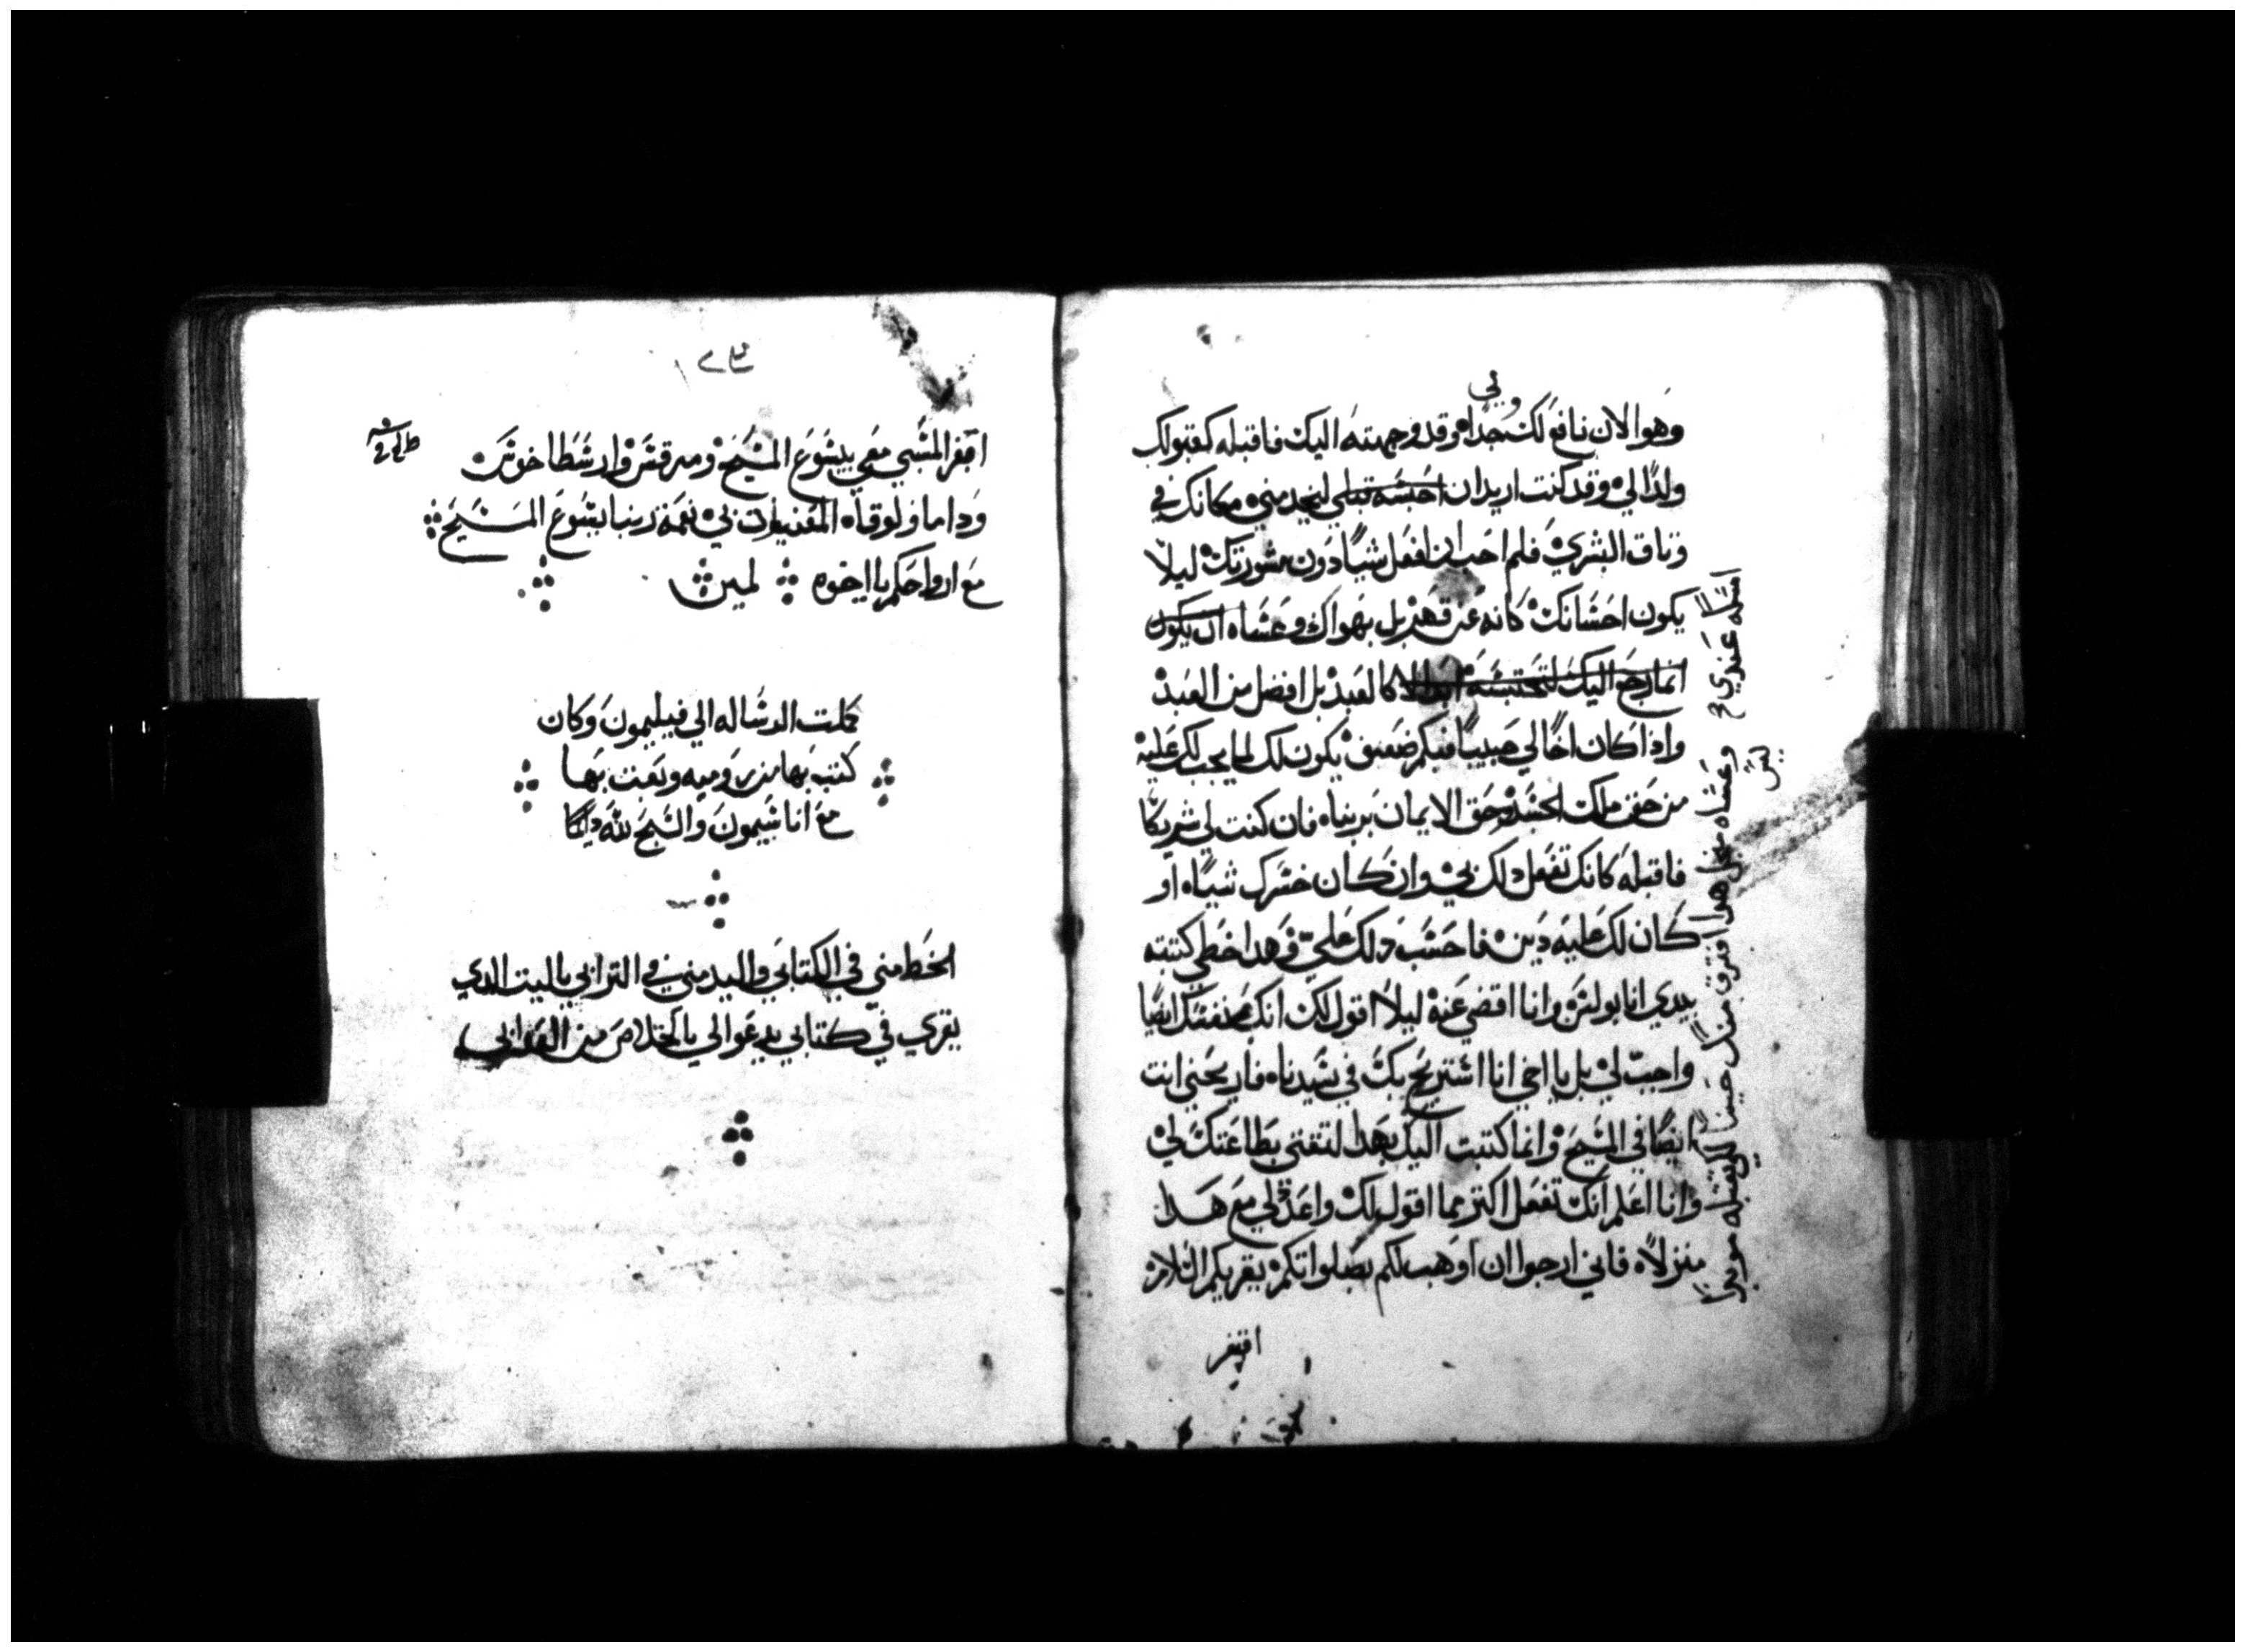 ولي
وهوا الان نافع لك جدا وقد وجهته اليك فاقبله كقبولك
ولدًا لي وقد كنت اريد ان احبسه قبلي ليخدمني مكانك في
وثاق البشري فلم احب ان افعل شيًا دون مشورتك ليلا
يكون احسانك كانه عن قهر بل بهواك وعساه ان يكون
انما رجع اليك لتحتبسه ابدا لا كالعبد بل افضل من العبد
واذا كان اخًا لي حبيبًا فبكم يكون لك لما يجب لك عليه
من حق ملك الجسد وحق الايمان بربنا فان كنت لي شريكا
فاقبله كانك تفعل دلك بي وان كان خسرك شيًا او
كان لك عليه دين فاحسب دلك علي فهدا خطي كتبته
بيدي انا بولس وانا اقضي عنه ليلا اقول لك انك بنفسك ايضًا
واجب لي بل يا اخي انا استريح بك في سيدنا فاريحني انت
ايضًا في المسيح وانما كتبت اليك بهدا لتقتي بطاعتك لي
وانا اعلم انك تفعل اكتر مما اقول لك واعد لي مع هدا
منزلاً فاني ارجوا ان اوهب لكم بصلواتكم يقريكم السلام
افقر
وعساه من اجل هدا افترق منك حينا لكي تقبله موبدا
افقر المسبي معي بيسوع المسيح ومرقس وارسطاخوس
وداما ولوقا المعنيان بي نعمة ربنا يسوع المسيح
مع ارواحكم يا اخوه امين
كملت الرساله الي فيليمون وكان
كتب بها من روميه وبعت بها
مع اناسيمون والسبح لله دايمًا
الخط مني في الكتابي واليد مني في الترابي ياليت الدي
يقري في كتابي يدعوا لي بالخلاص من العدابي